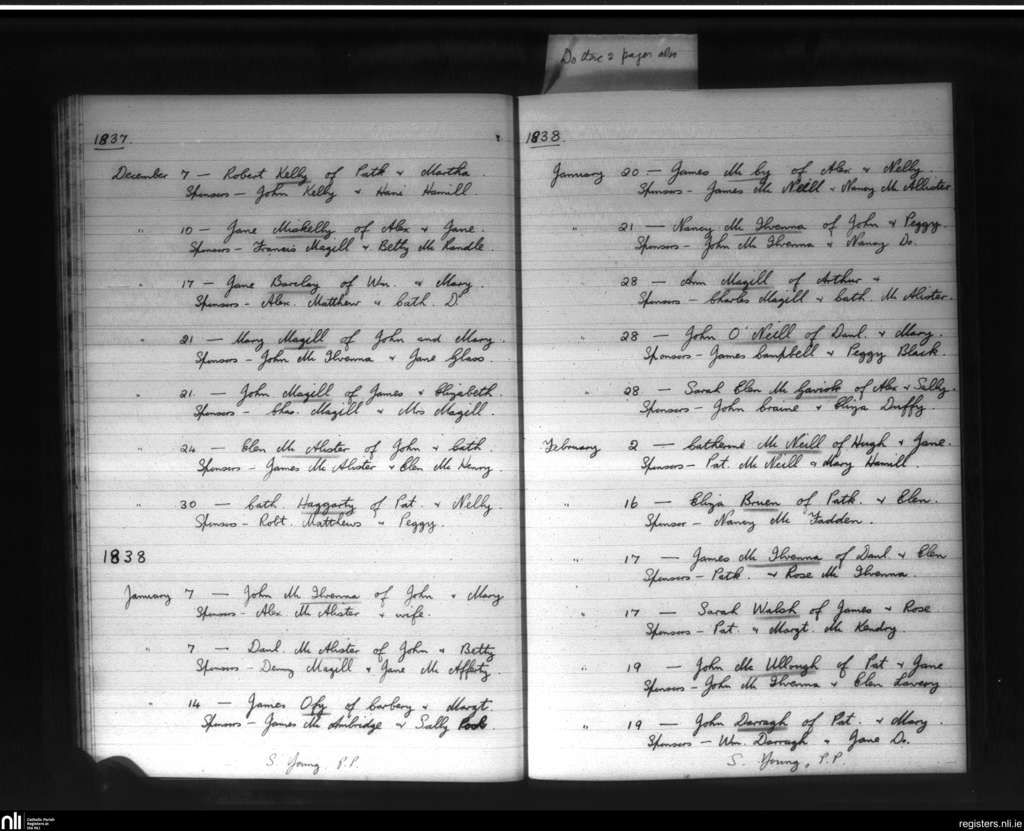 Do these 2 pages also
1837.
December 7 — Robert Kelly of Patk & Martha.
Sponsors - John Kelly & Hamill.
" 10 — Jane Miskelly of Alex & Jane.
Sponsors - Francis Magill & Betty Mc Randle.
" 17 — Jane Barclay of Wm. & Mary.
Sponsors - Alex. Matthew & Cath. D.
" 21 — Mary Magill of John and Mary.
Sponsors - John Mc Ilvenna & Jane Glass.
" 21. — John Magill of James & Elizabeth.
Sponsors - Chas. Magill & Mrs Magill.
" 24 — Elen Mc Alister of John & Cath.
Sponsors - James Mc Alister & Elen Mc Henry.
" 30 — Cath. Haggarty of Pat & Nelly.
Sponsors - Robt. Matthews & Peggy.
1838
January 7 — John Mc Ilvenna of John & Mary
Sponsors - Alex Mc Alister & wife.
" 7 — Danl. Mc Alister of John & Betty
Sponsors - Denny Magill & Jane Mc Afferty.
" 14 — James of Carbery & Margt.
Sponsors - James Mc Ambridge & Sally
S. Young, P.P.
1838.
January 20 — James Mc by of Alex & Nelly
Sponsors - James Mc Neill & Nancy Mc Allister
" 21 — Nancy Mc Ilvenna of John & Peggy.
Sponsors - John Mc Ilvenna & Nancy Do.
28 — Ann Magill of Arthur &
Sponsors - Charles Magill & Cath. Mc Alister.
" 28 — John O'Neill of Danl. & Mary.
Sponsors - James Campbell & Peggy Black.
" 28 — Sarah Elen Mc of Alex & Sally.
Sponsors - John & Eliza Duffy.
February 2 — Catherine Mc Neill of Hugh & Jane.
Sponsors - Pat. Mc Neill & Mary Hamill.
" 16 — Eliza Bruen of Patk. & Elen.
Sponsor - Nancy Mc Fadden.
17 — James Mc Ilvenna of Danl & Elen
Sponsors - Patk. & Rose Mc Ilvenna.
" 17 — Sarah Walsh of James & Rose
Sponsors - Pat. & Margt. Mc Kendry.
" 19 — John Mc Ullough of Pat & Jane
Sponsors - John Mc Ilvenna & Elen Lavery
" 19 — John Darragh of Pat. & Mary.
Sponsors - Wm. Darragh & Jane Do.
S. Young, P.P.
nli Catholic Parish Registers at the NLI
registers.nli.ie